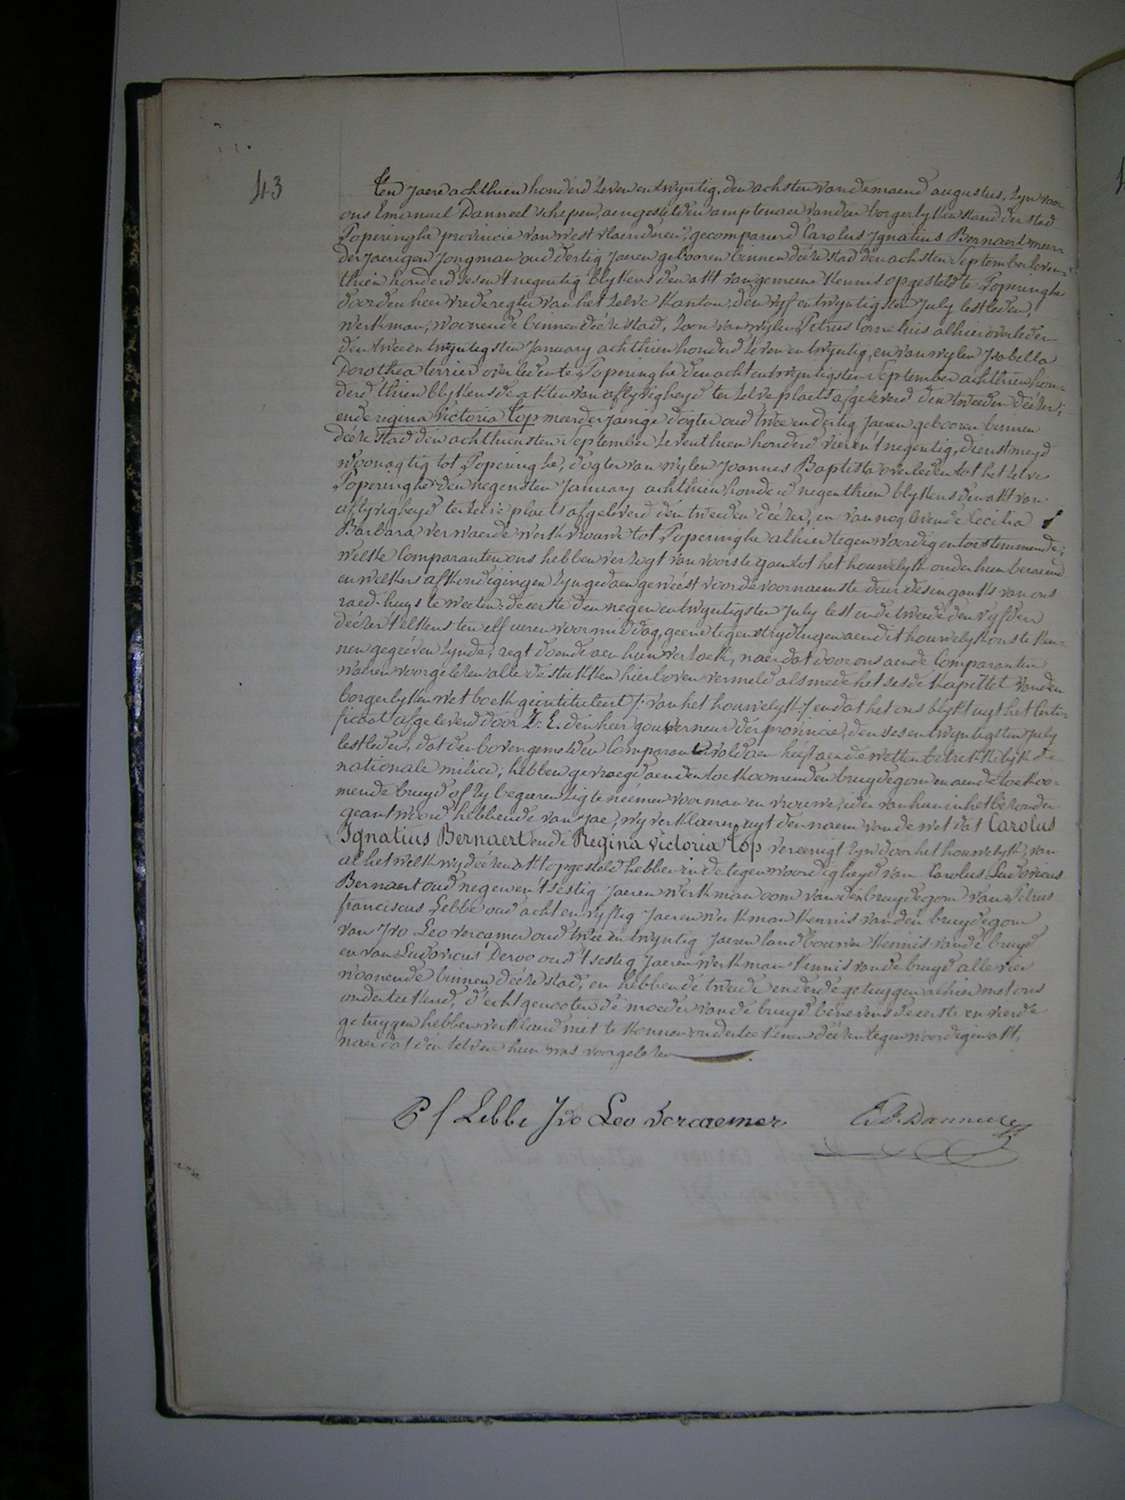 43
Ten jaere achthien honderd zeven en twyntig, den achsten van de maend augustus, zyn voor
ons Emanuel Danneel schepen, aengestelden amptenaer van den borgerlyken staend der stad
Poperinghe provincie van West vlaenderen, gecompareerd Carolus Ignatius Bernaert meer-
derjaerigen jongman oud dertig jaeren gebooren binnen deéze stad den achsten September zeven-
thien honderd zes en t'negentig blykens den akt van gemeene kennis opgesteld te Poperinghe
door den heer vrederegter van het zelve kanton, den vyf en twyntigsten July lestleden,
werkman, woonende binnen deéze stad, zoon van wylen Petrus Cornelis alhier overleden
den tweeentwyntigsten January achthien honderd zeven en twyntig, en van wylen Isabella
Dorothea terrier overleden te Poperinghe den acht entwyntigsten September achthien hon-
derd thien blykens de akten van aflyvigheyd ten zelve plaets afgeleverd den tweeden deézer;
ende regina Victoria Top meerderjaerige dogter oud twee en dertig jaeren gebooren binnen
deéze stad den achthiensten September zeventhien honderd vier en t negentig, dienstmeyd
woonagtig tot Poperinghe, dogter van wylen Joannes Baptista overleden tot het zelve
Poperinghe den negensten January achthien honderd negenthien blykens den akt van
aflyvigheyd ten zelve plaets afgeleverd den tweeden deézer, en van nog levende Cecilia
Barbara verwaerde werkvrouwe tot Poperinghe alhier tegenwoordig en toestemmende;
welke Comparanten ons hebben verzogt van voorts te gaen tot het houwelyk onder hun beraemd
en welkers afkondigingen zyn gedaen geweést voor de voornaemste deur des ingank's van ons
raed-huys te weeten: de eerste den negen en twyntigsten July lest ende tweede den vyfden
deézer telkens ten elf ueren voor middag, geene tegenstrydingen aen dit houwelyk ons te ken-
nen gegeéven zynde, regt doende aen hun verzoek, naer dat door ons aen de Comparanten
waeren voorgelezen alle de stukken hier boven vermeld als mede het sesde kapittel van den
borgerlyken wetboek geintituleert /: van het houwelyk :/ en dat het ons blykt uyt het Certi-
ficaet afgeleverd door Z: E. den heer gouverneur der provincie, den ses en twyntigsten July
lestleden, dat den bovengemelden Comparant voldaen heeft aen de wetten betrekkelyk de
nationale militie, hebben gevraegd aen den toekoemenden bruydegom en aen de toekoe-
mende bruyd of zy begeeren zig te neémen voor man en vrouwe, ider van hun in het bezonder
geantwoord hebbende van jae, wy verklaeren uyt den naem van de wet dat Carolus
Ignatius Bernaert ende Regina Victoria Top vereenigt zyn door het houwelyk, van
al het welk wy deézen akt opgesteld hebben in de tegenwoordigheyd van Carolus Ludovicus
Bernaert oud negen en t'sestig jaeren werkman oom van den bruydegom van Petrus
franciscus Lebbe oud acht en vyftig jaeren werkman kennis van den bruydegom
van Ivo Leo vercamer oud twee en twyntig jaeren landbouwer kennis van de bruyd
en van Ludovicus Deroo oud t sestig jaeren werkman kennis van de bruyd alle vier
woonende binnen deéze stad, en hebben de tweede en derde getuygen alhier met ons
onderteekend, d'echtgenooten de moeder van de bruyd benevens de eerste en vierde
getuygen hebben verklaerd niet te konnen onderteekenen deézen tegenwoordigen akt,
naer dat den zelven hun was voorgelezen
P f Lebbe Ivo Leo Vercaemer E. D. Danneel